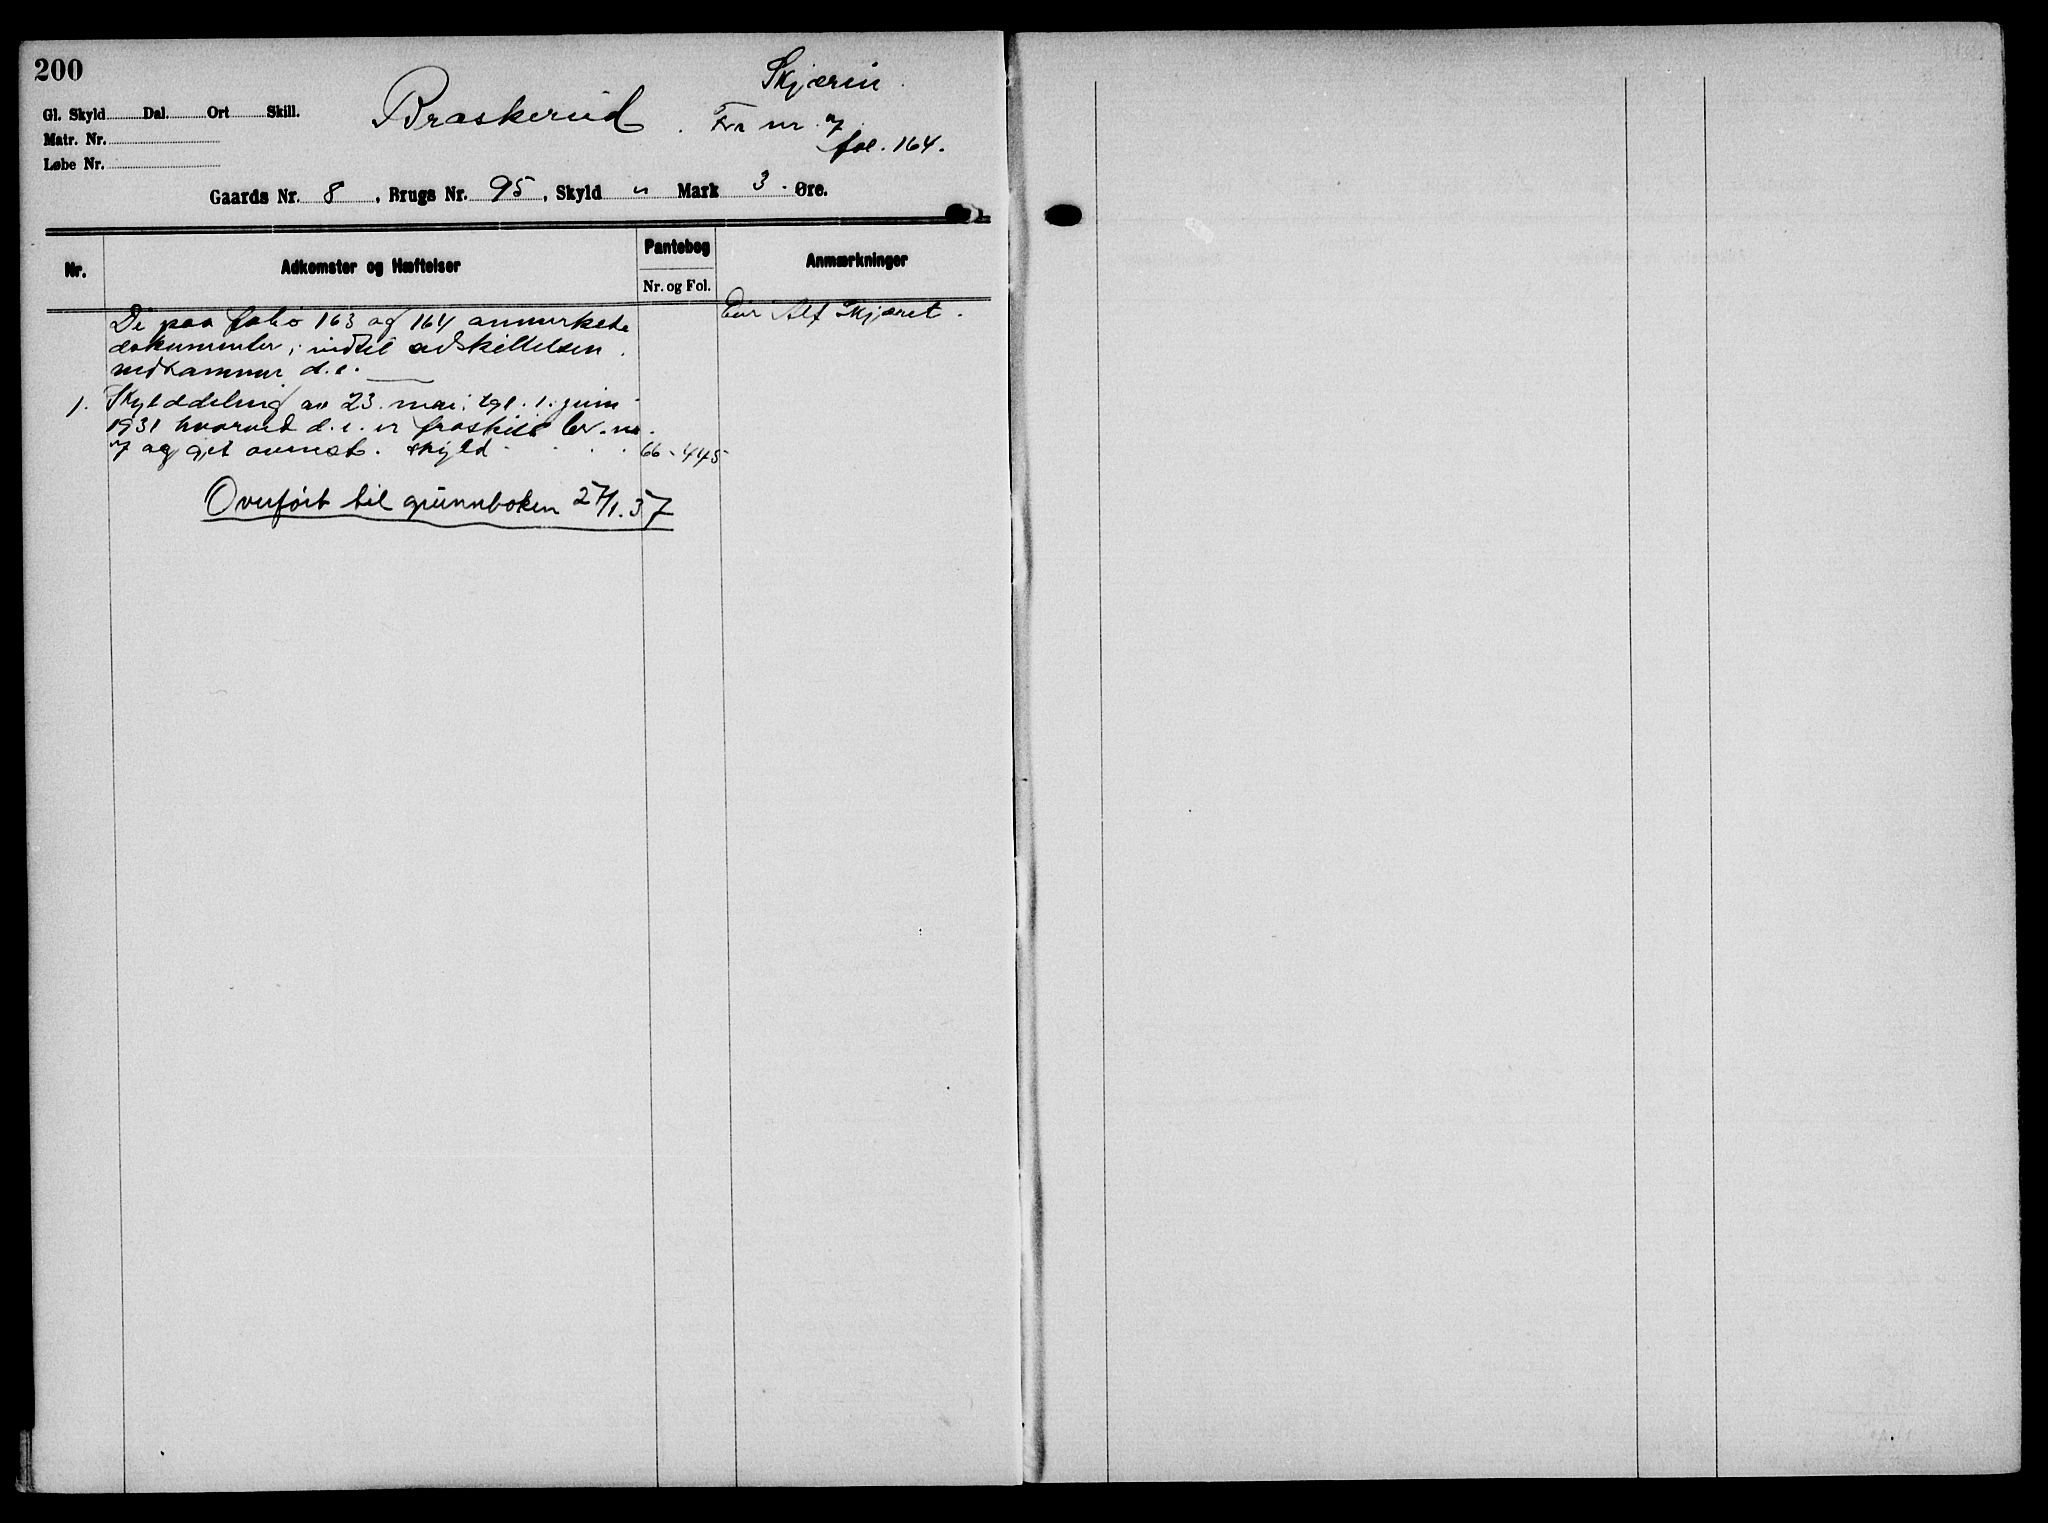 200
Skjæren
Gl. Skyld Dal. Ort Skill.
Braskerud. Fra nr. 7
Matr. Nr.
fol. 164.
Løbe Nr.
Gaards Nr. 8, Brugs Nr. 95, Skyld " Mark 3 Øre.
Nr. Adkomster og Hæftelser Pantebog Anmærkninger
Nr. og Fol.
De paa folio 163 og 164 anmerkede
Eier Alf Skjæret.
dokumenter, indtil adskillelsen
vedkommer d.e.
1. Skylddeling av 23. mai, tgl. 1. juni
1931 hvorved d.e. er fraskilt br. nr.
7 og git anmst. skyld 66-445
Overført til grunnboken 27/1.37